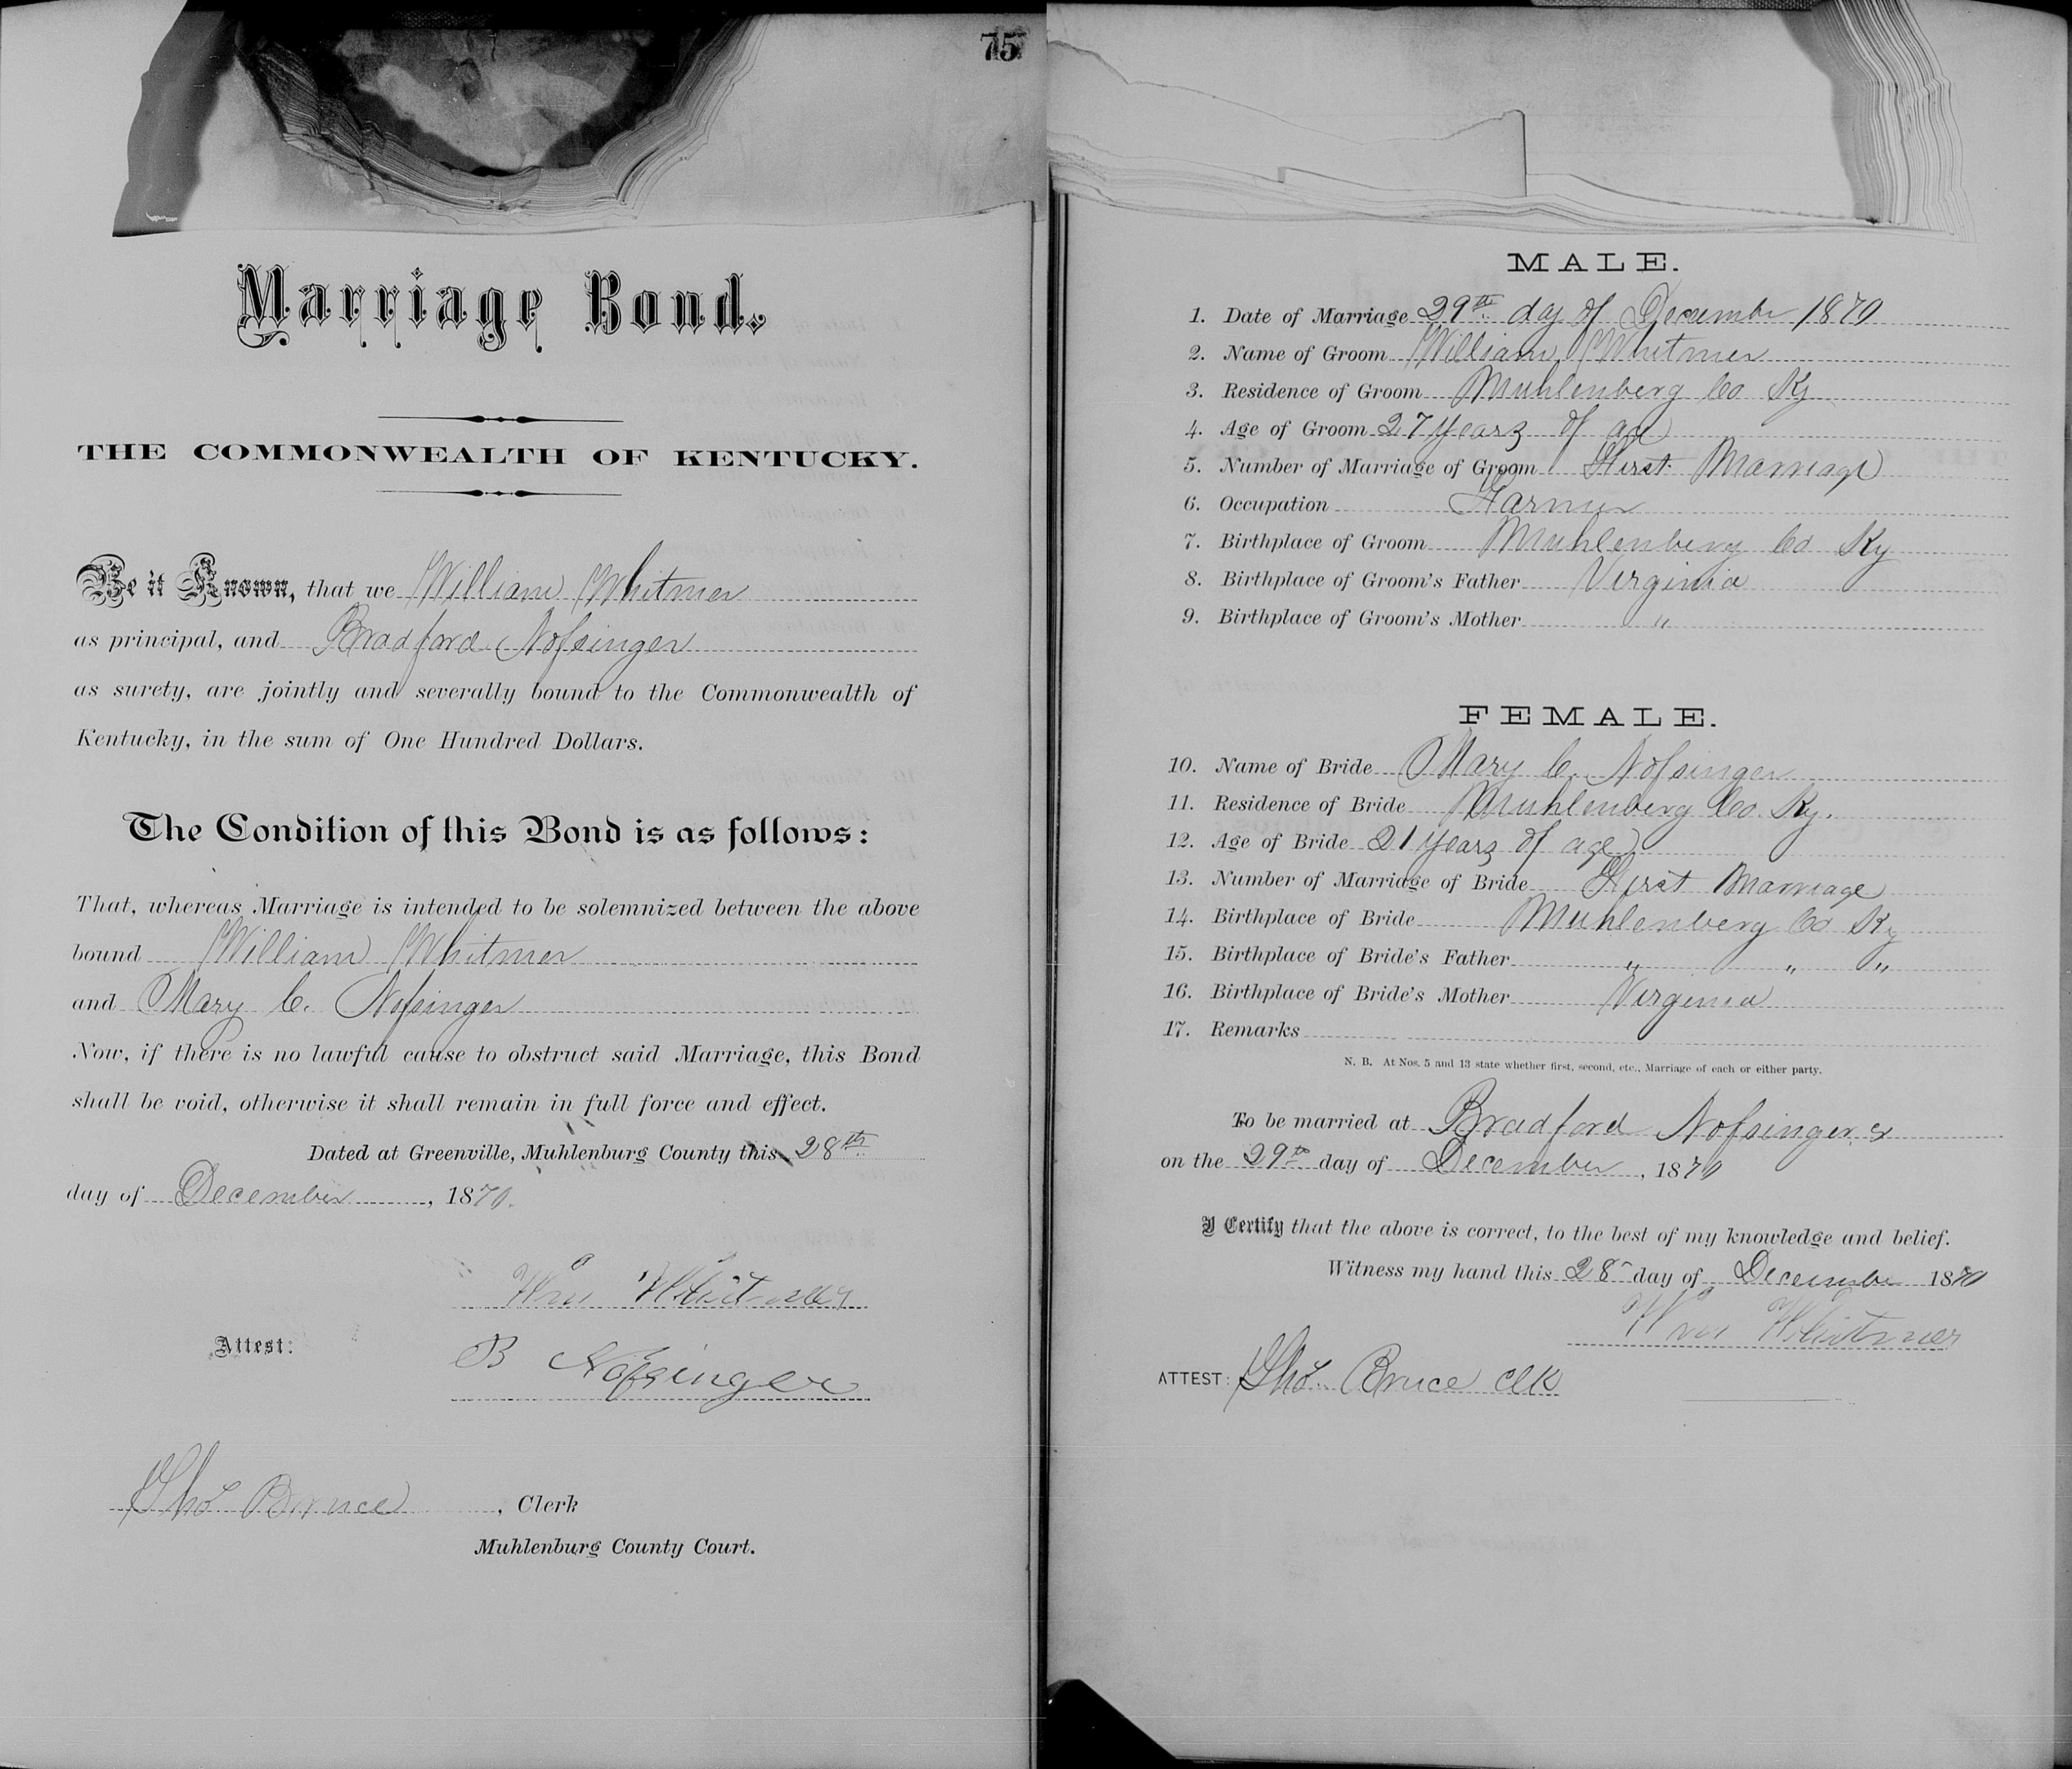 75
Marriage Bond.
THE COMMONWEALTH OF KENTUCKY.
Be it Known, that we William Whitmer
as principal, and Bradford Nofsinger
as surety, are jointly and severally bound to the Commonwealth of
Kentucky, in the sum of One Hundred Dollars.
The Condition of this Bond is as follows:
That, whereas Marriage is intended to be solemnized between the above
bound William Whitmer
and Mary C. Nofsinger
Now, if there is no lawful cause to obstruct said Marriage, this Bond
shall be void, otherwise it shall remain in full force and effect.
Dated at Greenville, Muhlenburg County this 28th
day of December, 1870.
Wm Whitmer
Attest:
B Nofsinger
Thos Bruce, Clerk
Muhlenburg County Court.
MALE.
1. Date of Marriage 29th day of December 1870
2. Name of Groom William Whitmer
3. Residence of Groom Muhlenberg Co Ky
4. Age of Groom 27 years of age
5. Number of Marriage of Groom First Marriage
6. Occupation Farmer
7. Birthplace of Groom Muhlenberg Co Ky
8. Birthplace of Groom's Father Virginia
9. Birthplace of Groom's Mother "
FEMALE.
10. Name of Bride Mary C. Nofsinger
11. Residence of Bride Muhlenberg Co. Ky.
12. Age of Bride 21 years of age
13. Number of Marriage of Bride First Marriage
14. Birthplace of Bride Muhlenberg Co Ky
15. Birthplace of Bride's Father " " "
16. Birthplace of Bride's Mother Virginia
17. Remarks
N. B. At Nos. 5 and 13 state whether first, second, etc., Marriage of each or either party.
To be married at Bradford Nofsingers
on the 29th day of December, 1870
I Certify that the above is correct, to the best of my knowledge and belief.
Witness my hand this 28 day of December 1870
Wm Whitmer
ATTEST: Thos. Bruce Clk